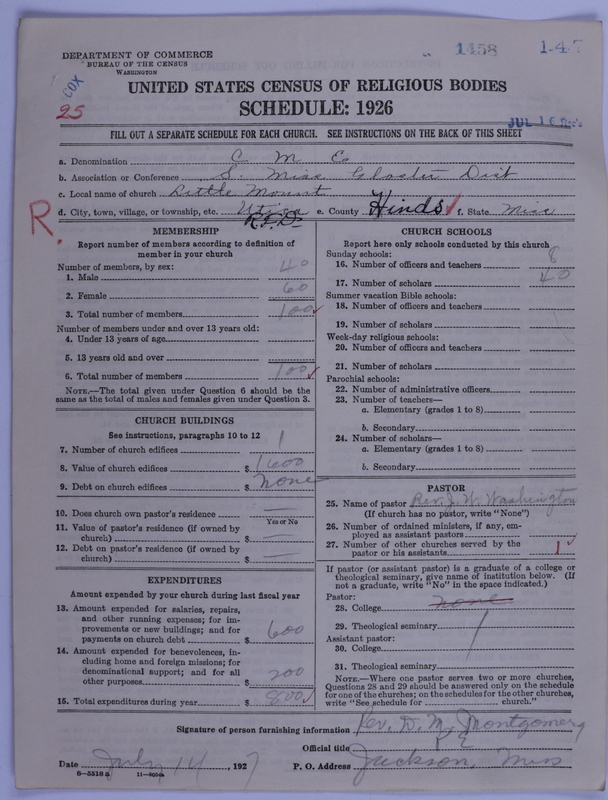 1458 147
DEPARTMENT OF COMMERCE
BUREAU OF THE CENSUS
WASHINGTON
COX
25
UNITED STATES CENSUS OF RELIGIOUS BODIES
SCHEDULE: 1926
JUL 16
FILL OUT A SEPARATE SCHEDULE FOR EACH CHURCH. SEE INSTRUCTIONS ON THE BACK OF THIS SHEET
a. Denomination C M E
b. Association or Conference S. Miss Gloster Dist
c. Local name of church Little Mount
d. City, town, village, or township, etc. Utica R.F.D. e. County Hinds f. State Miss
R.
MEMBERSHIP
Report number of members according to definition of
member in your church
Number of members, by sex:
1. Male 40
2. Female 60
3. Total number of members 100
Number of members under and over 13 years old:
4. Under 13 years of age
5. 13 years old and over
6. Total number of members 100
NOTE.—The total given under Question 6 should be the
same as the total of males and females given under Question 3.
CHURCH BUILDINGS
See instructions, paragraphs 10 to 12
7. Number of church edifices 1
8. Value of church edifices $ 1600
9. Debt on church edifices $ none
10. Does church own pastor's residence? —
Yes or No
11. Value of pastor's residence (if owned by
church) $ —
12. Debt on pastor's residence (if owned by
church) $ —
EXPENDITURES
Amount expended by your church during last fiscal year
13. Amount expended for salaries, repairs,
and other running expenses; for im-
provements or new buildings; and for
payments on church debt $ 600
14. Amount expended for benevolences, in-
cluding home and foreign missions; for
denominational support; and for all
other purposes $ 200
15. Total expenditures during year $ 800
CHURCH SCHOOLS
Report here only schools conducted by this church
Sunday schools:
16. Number of officers and teachers 8
17. Number of scholars 40
Summer vacation Bible schools:
18. Number of officers and teachers
19. Number of scholars
Week-day religious schools:
20. Number of officers and teachers
21. Number of scholars
Parochial schools:
22. Number of administrative officers
23. Number of teachers—
a. Elementary (grades 1 to 8)
b. Secondary
24. Number of scholars—
a. Elementary (grades 1 to 8)
b. Secondary
PASTOR
25. Name of pastor Rev. J. W. Washington
(If church has no pastor, write "None")
26. Number of ordained ministers, if any, em-
ployed as assistant pastors
27. Number of other churches served by the
pastor or his assistants 1
If pastor (or assistant pastor) is a graduate of a college or
theological seminary, give name of institution below. (If
not a graduate, write "No" in the space indicated.)
Pastor:
28. College none
29. Theological seminary
Assistant pastor:
30. College
31. Theological seminary
NOTE.—Where one pastor serves two or more churches,
Questions 28 and 29 should be answered only on the schedule
for one of the churches; on the schedules for the other churches,
write "See schedule for church."
Signature of person furnishing information Rev. D. M. Montgomery
Official title P E
Date July 14, 1927 P. O. Address Jackson, Miss
6—5518a 11—8094